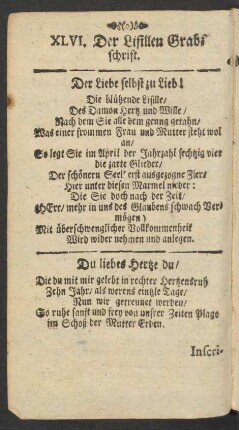 XLVI. Der Lisillen Grab⸗
schrifft.
Der Liebe selbst zu Lieb!
Die blühende Lisille/
Des Damon Hertz und Wille/
Nach dem Sie alle dem genug gethan/
Was einer frommen Frau und Mutter steht wol
an/
So legt Sie im April der Jahrzahl sechtzig vier
die zarte Glieder/
Der schönern Seel' erst ausgezogne Zier/
Hier unter diesen Marmel nieder:
Die Sie doch nach der Zeit/
(HErr/ mehr in uns des Glaubens schwach Ver⸗
mögen)
Mit überschwenglicher Vollkommenheit
Wird wider nehmen und anlegen.
Du liebes Hertze du/
Die du mit mir gelebt in rechter Hertzensruh
Zehn Jahr/ als werens eintzle Tage/
Nun wir getrennet werden/
So ruhe sanft und frey von unsrer Zeiten Plage
im Schoß der Mutter Erden.
Inscri-